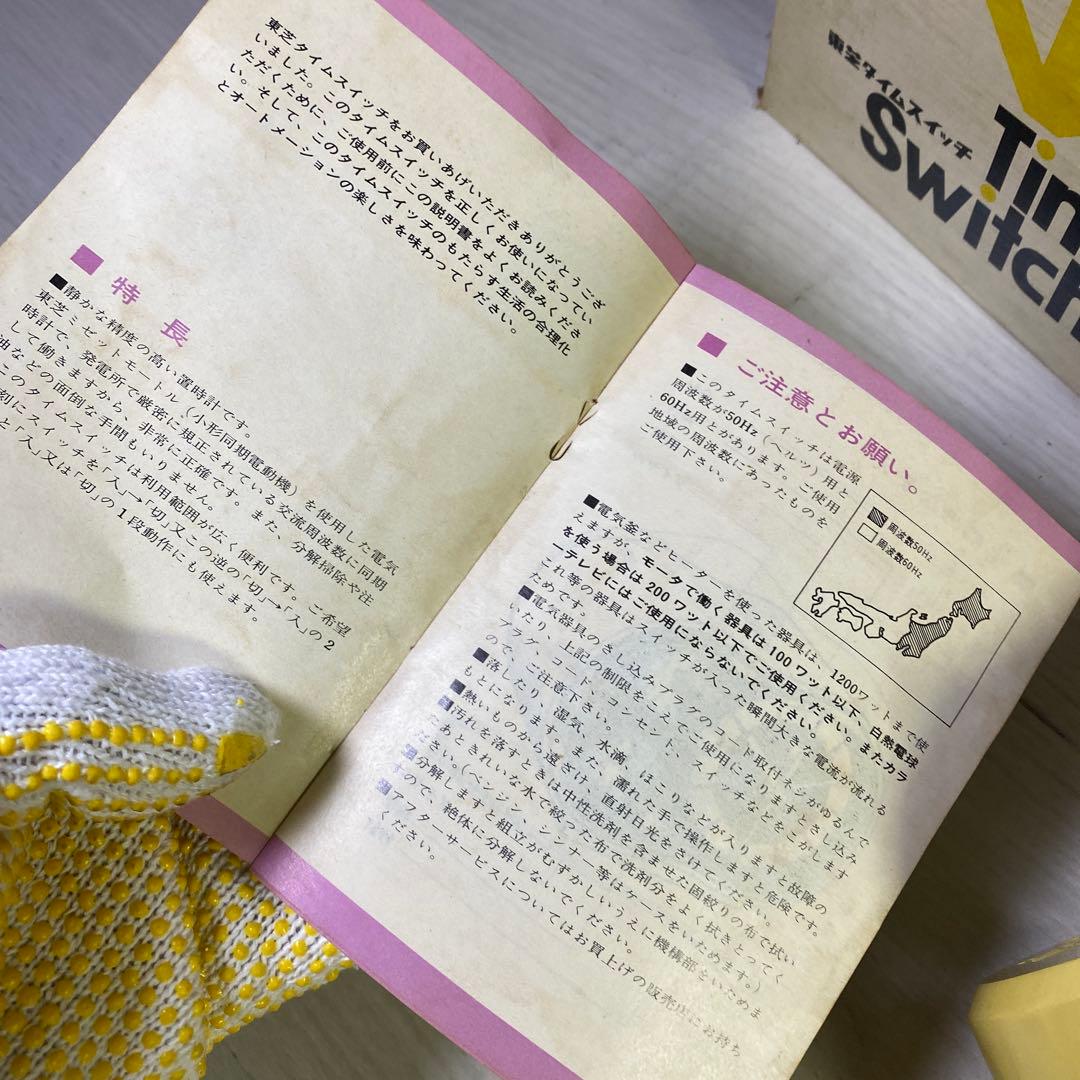 東芝タイムスイッチをお買いあげいただきありがとうござ
いました。このタイムスイッチを正しくお使いになってい
ただくために、ご使用前にこの説明書をよくお読みくださ
い。そして、このタイムスイッチのもたらす生活の合理化
とオートメーションの楽しさを味わってください。
■特長
■静かな精度の高い置時計です。
東芝ミゼットモートル(小形同期電動機)を使用した電気
時計で、発電所で厳密に規正されている交流周波数に同期
して働きますから、非常に正確です。また、分解掃除や注
油などの面倒な手間もいりません。
このタイムスイッチは利用範囲が広く便利です。ご希望
刻にスイッチを「入」→「切」又この逆の「切」→「入」の2
と「入」又は「切」の1段動作にも使えます。
■ご注意とお願い。
■このタイムスイッチは電源
周波数が50Hz(ヘルツ)用と
60Hz用とがあります。ご使用
地域の周波数にあったものを
ご使用下さい。
周波数50Hz
周波数60Hz
■電気釜などヒーターを使った器具は、1200ワットまで使
えますが、モータで働く器具は100ワット以下、白熱電球
を使う場合は200ワット以下でご使用ください。またカラ
ーテレビにはご使用にならないでください。
これ等の器具はスイッチが入った瞬間大きな電流が流れる
ためです。
■電気器具のさし込みプラグのコード取付ネジがゆるんで
いたり、上記の制限をこえてご使用になりますとさし込み
プラグ、コード、コンセント、スイッチなどをこがします
ので、ご注意下さい。
■落したり、湿気、水滴、ほこりなどが入りますと故障の
もとになります。また、濡れた手で操作しますと危険です。
■熱いものから遠ざけ、直射日光をさけてください。
■汚れを落すときは中性洗剤を含ませた固絞りの布で拭い
たあときれいな水で絞った布で洗剤分をよく拭きとってく
ださい。(ベンジン、シンナー等はケースをいためます。)
■分解しますと組立がむずかしいうえに機構部をいためま
すので、絶体に分解しないでください。
■アフターサービスについてはお買上げの販売店にお持ち
ください。
東芝タイムスイッチ
Tim
Switch